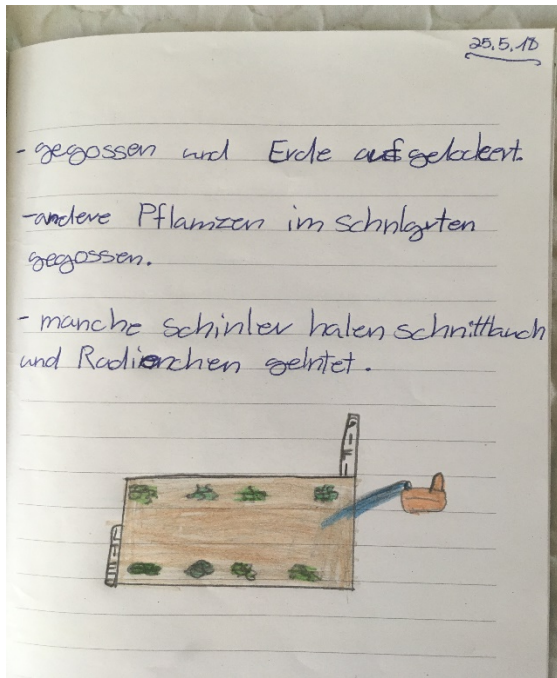 25.5.18
- gegossen und Erde aufgelockert.
- andere Pflanzen im Schulgarten
gegossen.
- manche Schüler haben Schnittlauch
und Radieschen geerntet.